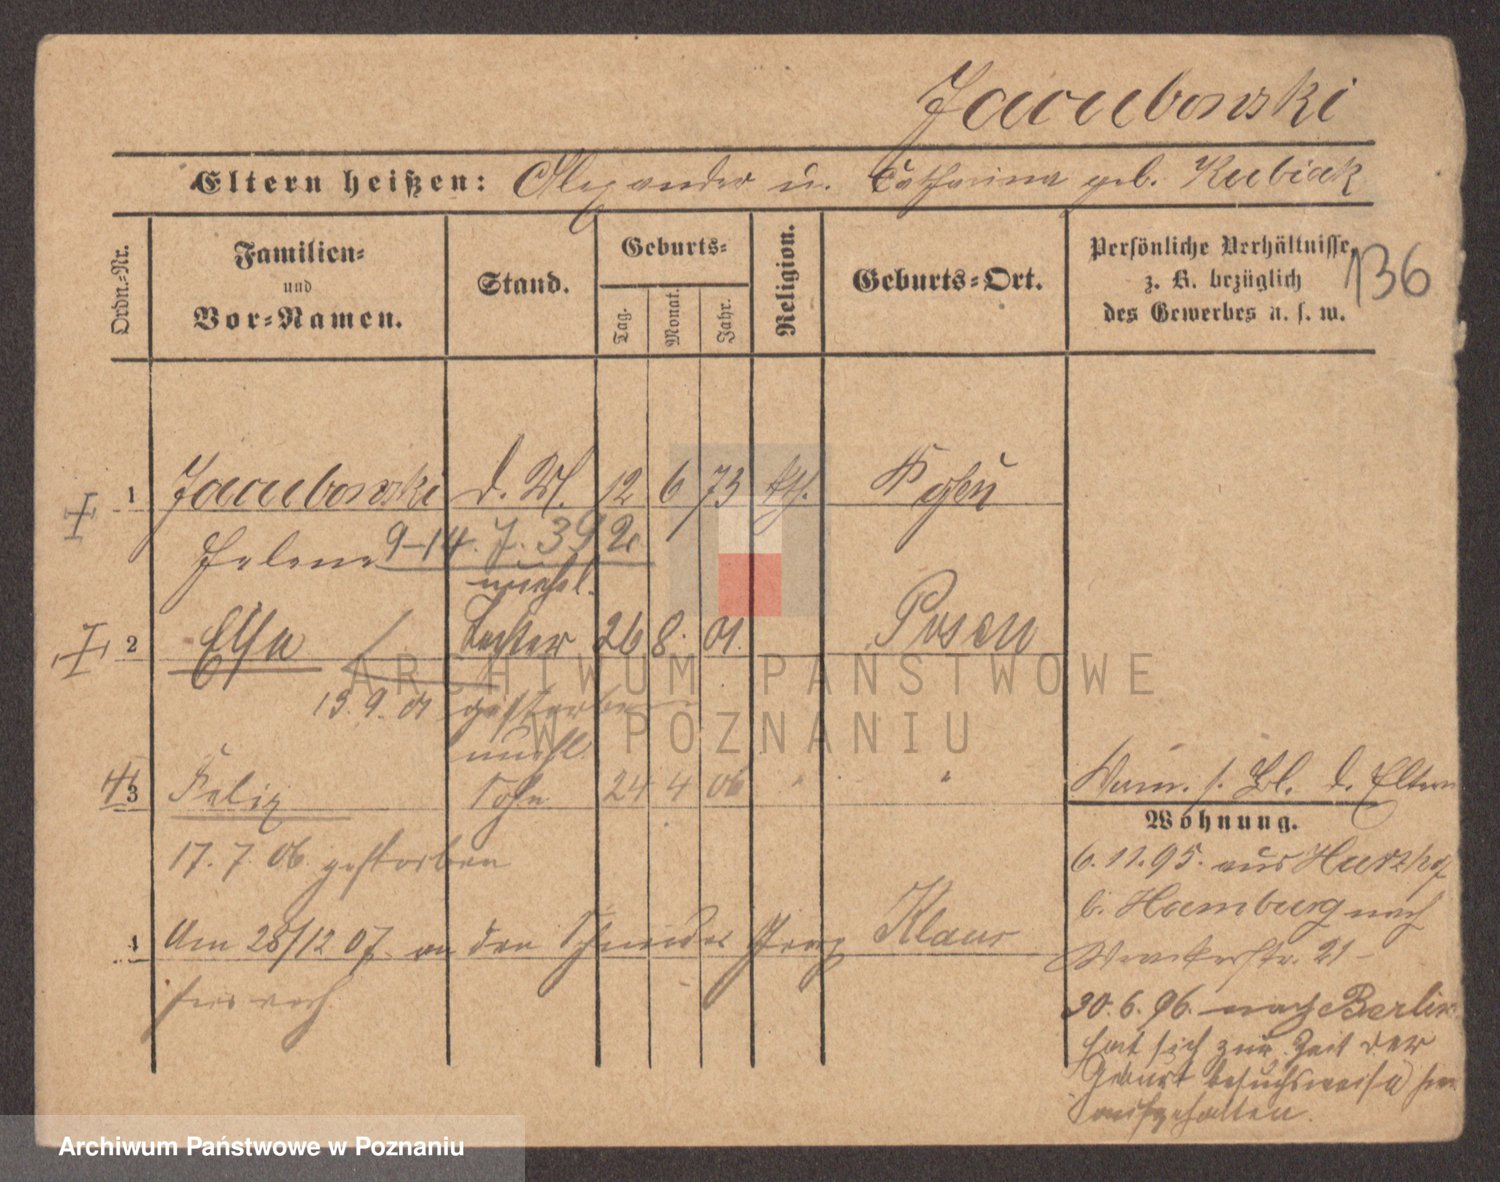 Jacubowski
Eltern heißen: Alexander u. Catharina geb. Kubiak
Ordn.-Nr.
Familien-
und
Vor-Namen.
Stand.
Geburts-
Tag.
Monat.
Jahr.
Religion.
Geburts-Ort.
Persönliche Verhältnisse
z. B. bezüglich
des Gewerbes u. s. w.
136
1 Jacubowski d. M. 12 6 73 kth.
Helene 9-14. 7. 39
unehel.
2 Elsa Tochter 26 8. 01. Posen
13. 9. 01 gestorben
unehl.
3 Felix Sohn 24 4 06 " "
17. 7. 06 gestorben
4 Am 28/12 07 an den Schneider Franz Klaus
Wwm. s. Bl. d. Eltern
Wohnung.
6. 11. 95. aus
b. Hamburg nach
str. 21
30. 6. 96. nach Berlin
hat sich zur Zeit der
Geburt besuchsweise hier
aufgehalten.
ARCHIWUM PAŃSTWOWE
W POZNANIU
Archiwum Państwowe w Poznaniu